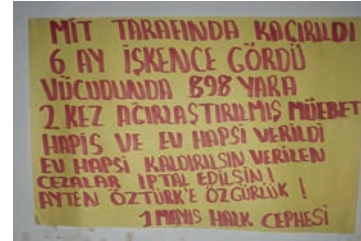 MİT TARAFINDA KAÇIRILDI
6 AY İŞKENCE GÖRDÜ
VÜCUDUNDA 898 YARA
2 KEZ AĞIRLAŞTIRILMIŞ MÜEBBET
HAPİS VE EV HAPSİ VERİLDİ
EV HAPSİ KALDIRILSIN VERİLEN
CEZALAR İPTAL EDİLSİN!
AYTEN ÖZTÜRK'E ÖZGÜRLÜK!
1 MAYIS HALK CEPHESİ